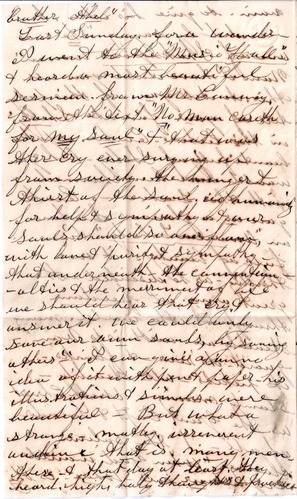 brother Ethel"
Last Sunday for a wonder
I went to the "Music
& heard a most beautiful
sermon from Mr
from the text "No Man careth
for my Soul" that was
the cry ever surging up
from society the inner
thirst of the Soul, in humanity
for help & sympathy &
Souls should so
with love & purity & sympathy
that underneath the convention
-alities & the merriment of life
we should hear that cry &
answer it We could only
save our own souls, by saving
others" I can give you no
idea of it with pen & paper his
illustrations & similes were
beautiful — But what a
strange, motley, irreverent
audience that is many men
there, & that day at least they
heard high, holy